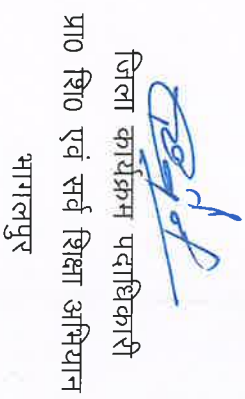 जिला कार्यक्रम पदाधिकारी
प्रा० शि० एवं सर्व शिक्षा अभियान
भागलपुर